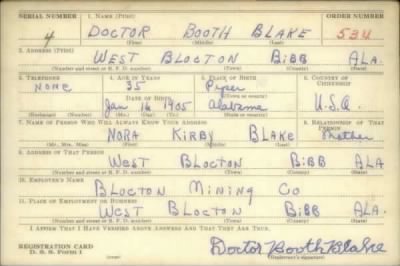 SERIAL NUMBER 1. NAME (Print) ORDER NUMBER
4 DOCTOR BOOTH BLAKE 534
(First) (Middle) (Last)
2. ADDRESS (Print)
WEST BLOCTON BIBB ALA.
(Number and street or R. F. D. number) (Town) (County) (State)
3. TELEPHONE 4. AGE IN YEARS 5. PLACE OF BIRTH 6. COUNTRY OF CITIZENSHIP
NONE 35 Piper
DATE OF BIRTH (Town or county)
Jan 16 1905 Alabama U.S.A.
(Exchange) (Number) (Mo.) (Day) (Yr.) (State or country)
7. NAME OF PERSON WHO WILL ALWAYS KNOW YOUR ADDRESS 8. RELATIONSHIP OF THAT PERSON
NORA KIRBY BLAKE Mother
(Mr., Mrs., Miss) (First) (Middle) (Last)
9. ADDRESS OF THAT PERSON
WEST BLOCTON BIBB ALA
(Number and street or R. F. D. number) (Town) (County) (State)
10. EMPLOYER'S NAME
BLOCTON MINING CO
11. PLACE OF EMPLOYMENT OR BUSINESS
WEST BLOCTON BIBB ALA.
(Number and street or R. F. D. number) (Town) (County) (State)
I AFFIRM THAT I HAVE VERIFIED ABOVE ANSWERS AND THAT THEY ARE TRUE.
REGISTRATION CARD
D. S. S. Form 1 Doctor Booth Blake
(Registrant's signature)